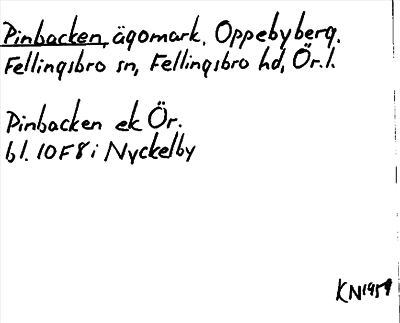 Pinbacken, ägomark, Oppebyberg,
Fellingsbro sn, Fellingsbro hd, Ör.l.
Pinbacken ek Ör.
bl. 10F8i Nyckelby
KN1959